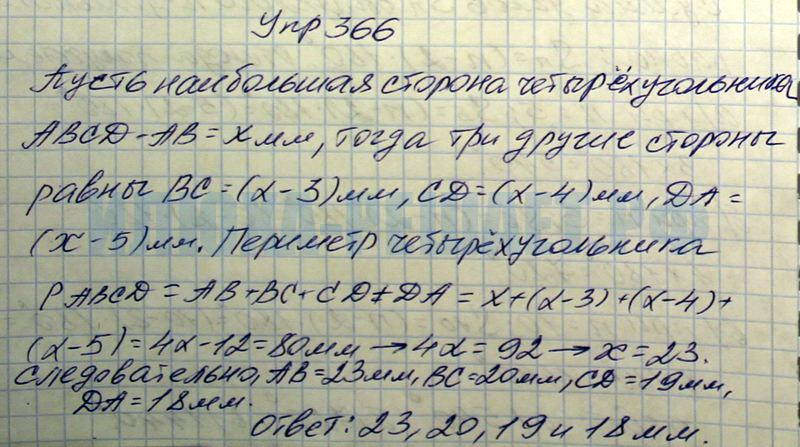 Упр 366
Пусть наибольшая сторона четырёхугольника
ABCD - AB = x мм, тогда три другие стороны
равны BC = (x - 3) мм, CD = (x - 4) мм, DA =
(x - 5) мм. Периметр четырёхугольника
P ABCD = AB + BC + CD + DA = x + (x - 3) + (x - 4) +
(x - 5) = 4x - 12 = 80 мм → 4x = 92 → x = 23.
Следовательно, AB = 23 мм, BC = 20 мм, CD = 19 мм,
DA = 18 мм.
Ответ: 23, 20, 19 и 18 мм.